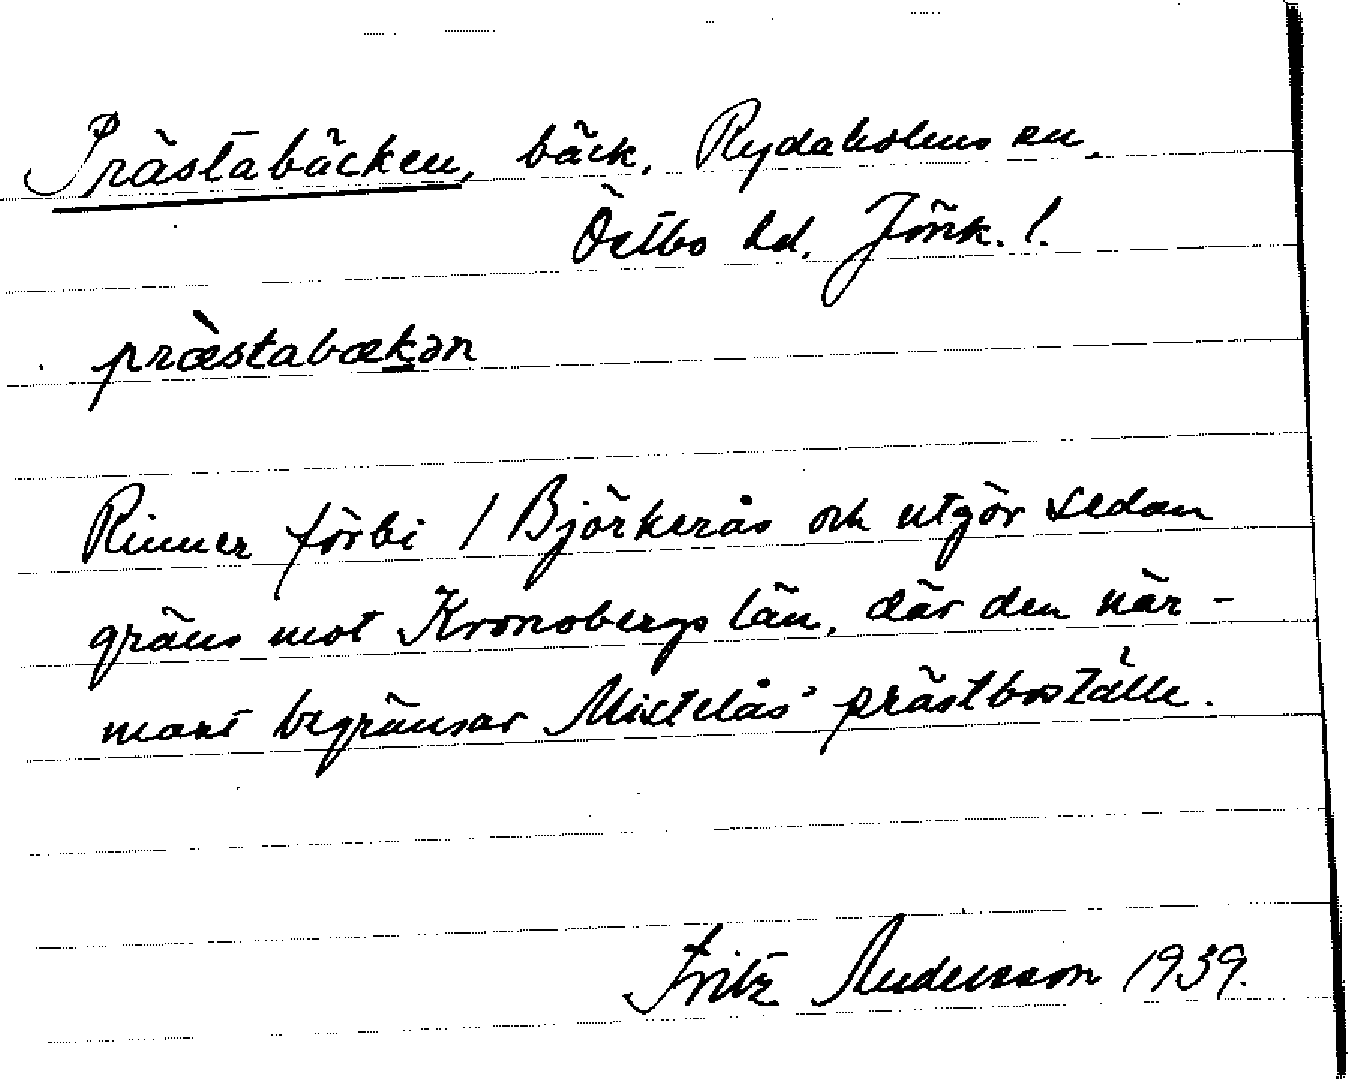 Prästabäcken, bäck, Rydaholms sn.
Östbo hd, Jönk. l.
præ̀stabækən
Rinner förbi / Björkerås och utgör sedan
gräns mot Kronobergs län, där den när-
mast begränsar Mistelås' prästboställe.
Fritz Andersson 1939.